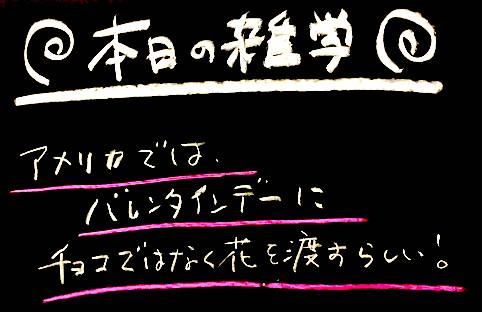 本日の雑学
アメリカでは、
バレンタインデーに
チョコではなく花を渡すらしい!